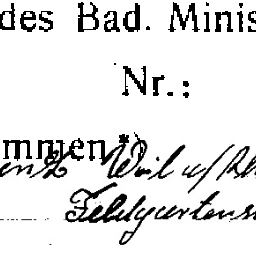 des Bad. Minis
Nr.:
mmen*)
Weil a/Rh
Feldgartens